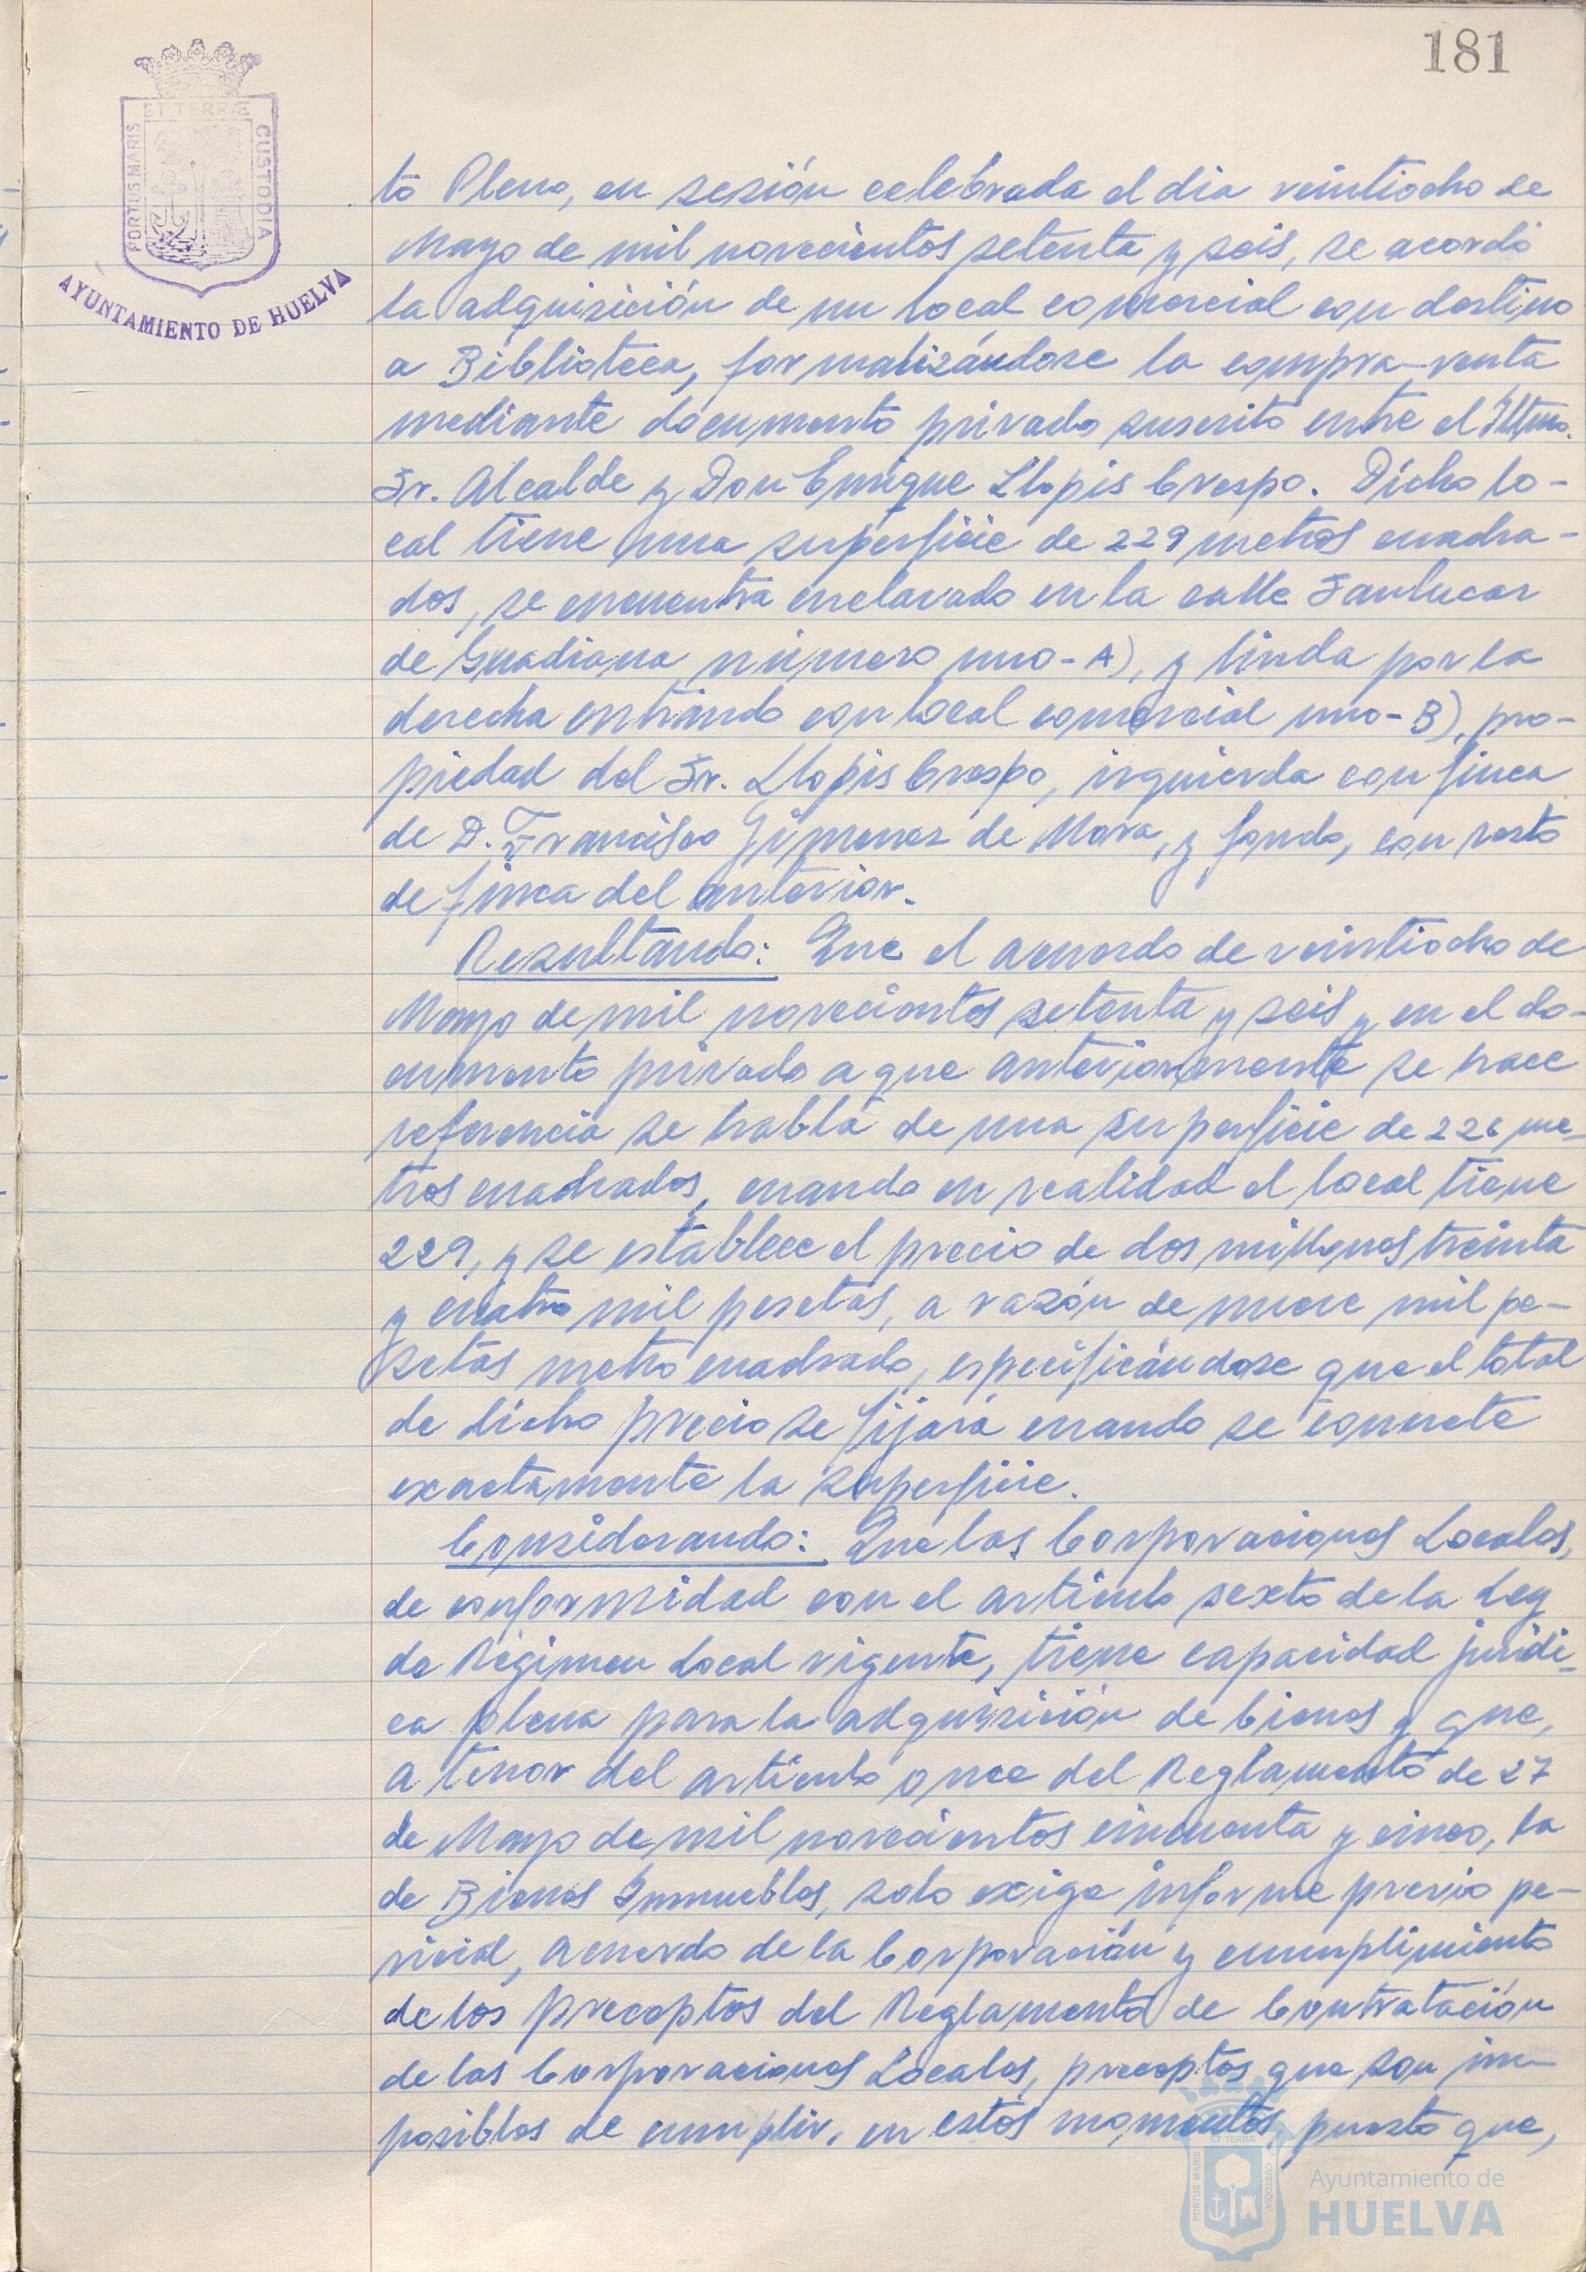 181
ET TERRÆ
PORTUS MARIS
CUSTODIA
AYUNTAMIENTO DE HUELVA
to Pleno, en sesión celebrada el dia veintiocho de
Mayo de mil novecientos setenta y seis, se acordó
la adquisición de un local comercial con destino
a Biblioteca, formalizándose la compra-venta
mediante documento privado suscrito entre el Iltmo.
Sr. Alcalde y Don Enrique Llopis Crespo. Dicho lo-
cal tiene una superficie de 229 metros cuadra-
dos, se encuentra enclavado en la calle Sanlucar
de Guadiana número uno-A), y linda por la
derecha entrando con local comercial uno-B), pro-
piedad del Sr. Llopis Crespo, izquierda con finca
de D. Francisco Jimenez de Mora, y fondo, con resto
de finca del anterior.
Resultando: Que el acuerdo de veintiocho de
Mayo de mil novecientos setenta y seis y en el do-
cumento privado a que anteriormente se hace
referencia se habla de una superficie de 226 me-
tros cuadrados, cuando en realidad el local tiene
229, y se establece el precio de dos millones treinta
y cuatro mil pesetas, a razón de nueve mil pe-
setas metro cuadrado, especificándose que el total
de dicho precio se fijará cuando se concrete
exactamente la superficie.
Considerando: Que las Corporaciones Locales,
de conformidad con el artículo sexto de la Ley
de Régimen Local vigente, tiene capacidad jurídi-
ca plena para la adquisición de bienes y que,
a tenor del artículo once del Reglamento de 27
de Mayo de mil novecientos cincuenta y cinco, la
de Bienes Inmuebles, solo exige informe previo pe-
ricial, acuerdo de la Corporación y cumplimiento
de los preceptos del Reglamento de Contratación
de las Corporaciones Locales, preceptos que son im-
posibles de cumplir, en estos momentos, puesto que,
ET TERRÆ
PORTUS MARIS
CUSTODIA
Ayuntamiento de
HUELVA